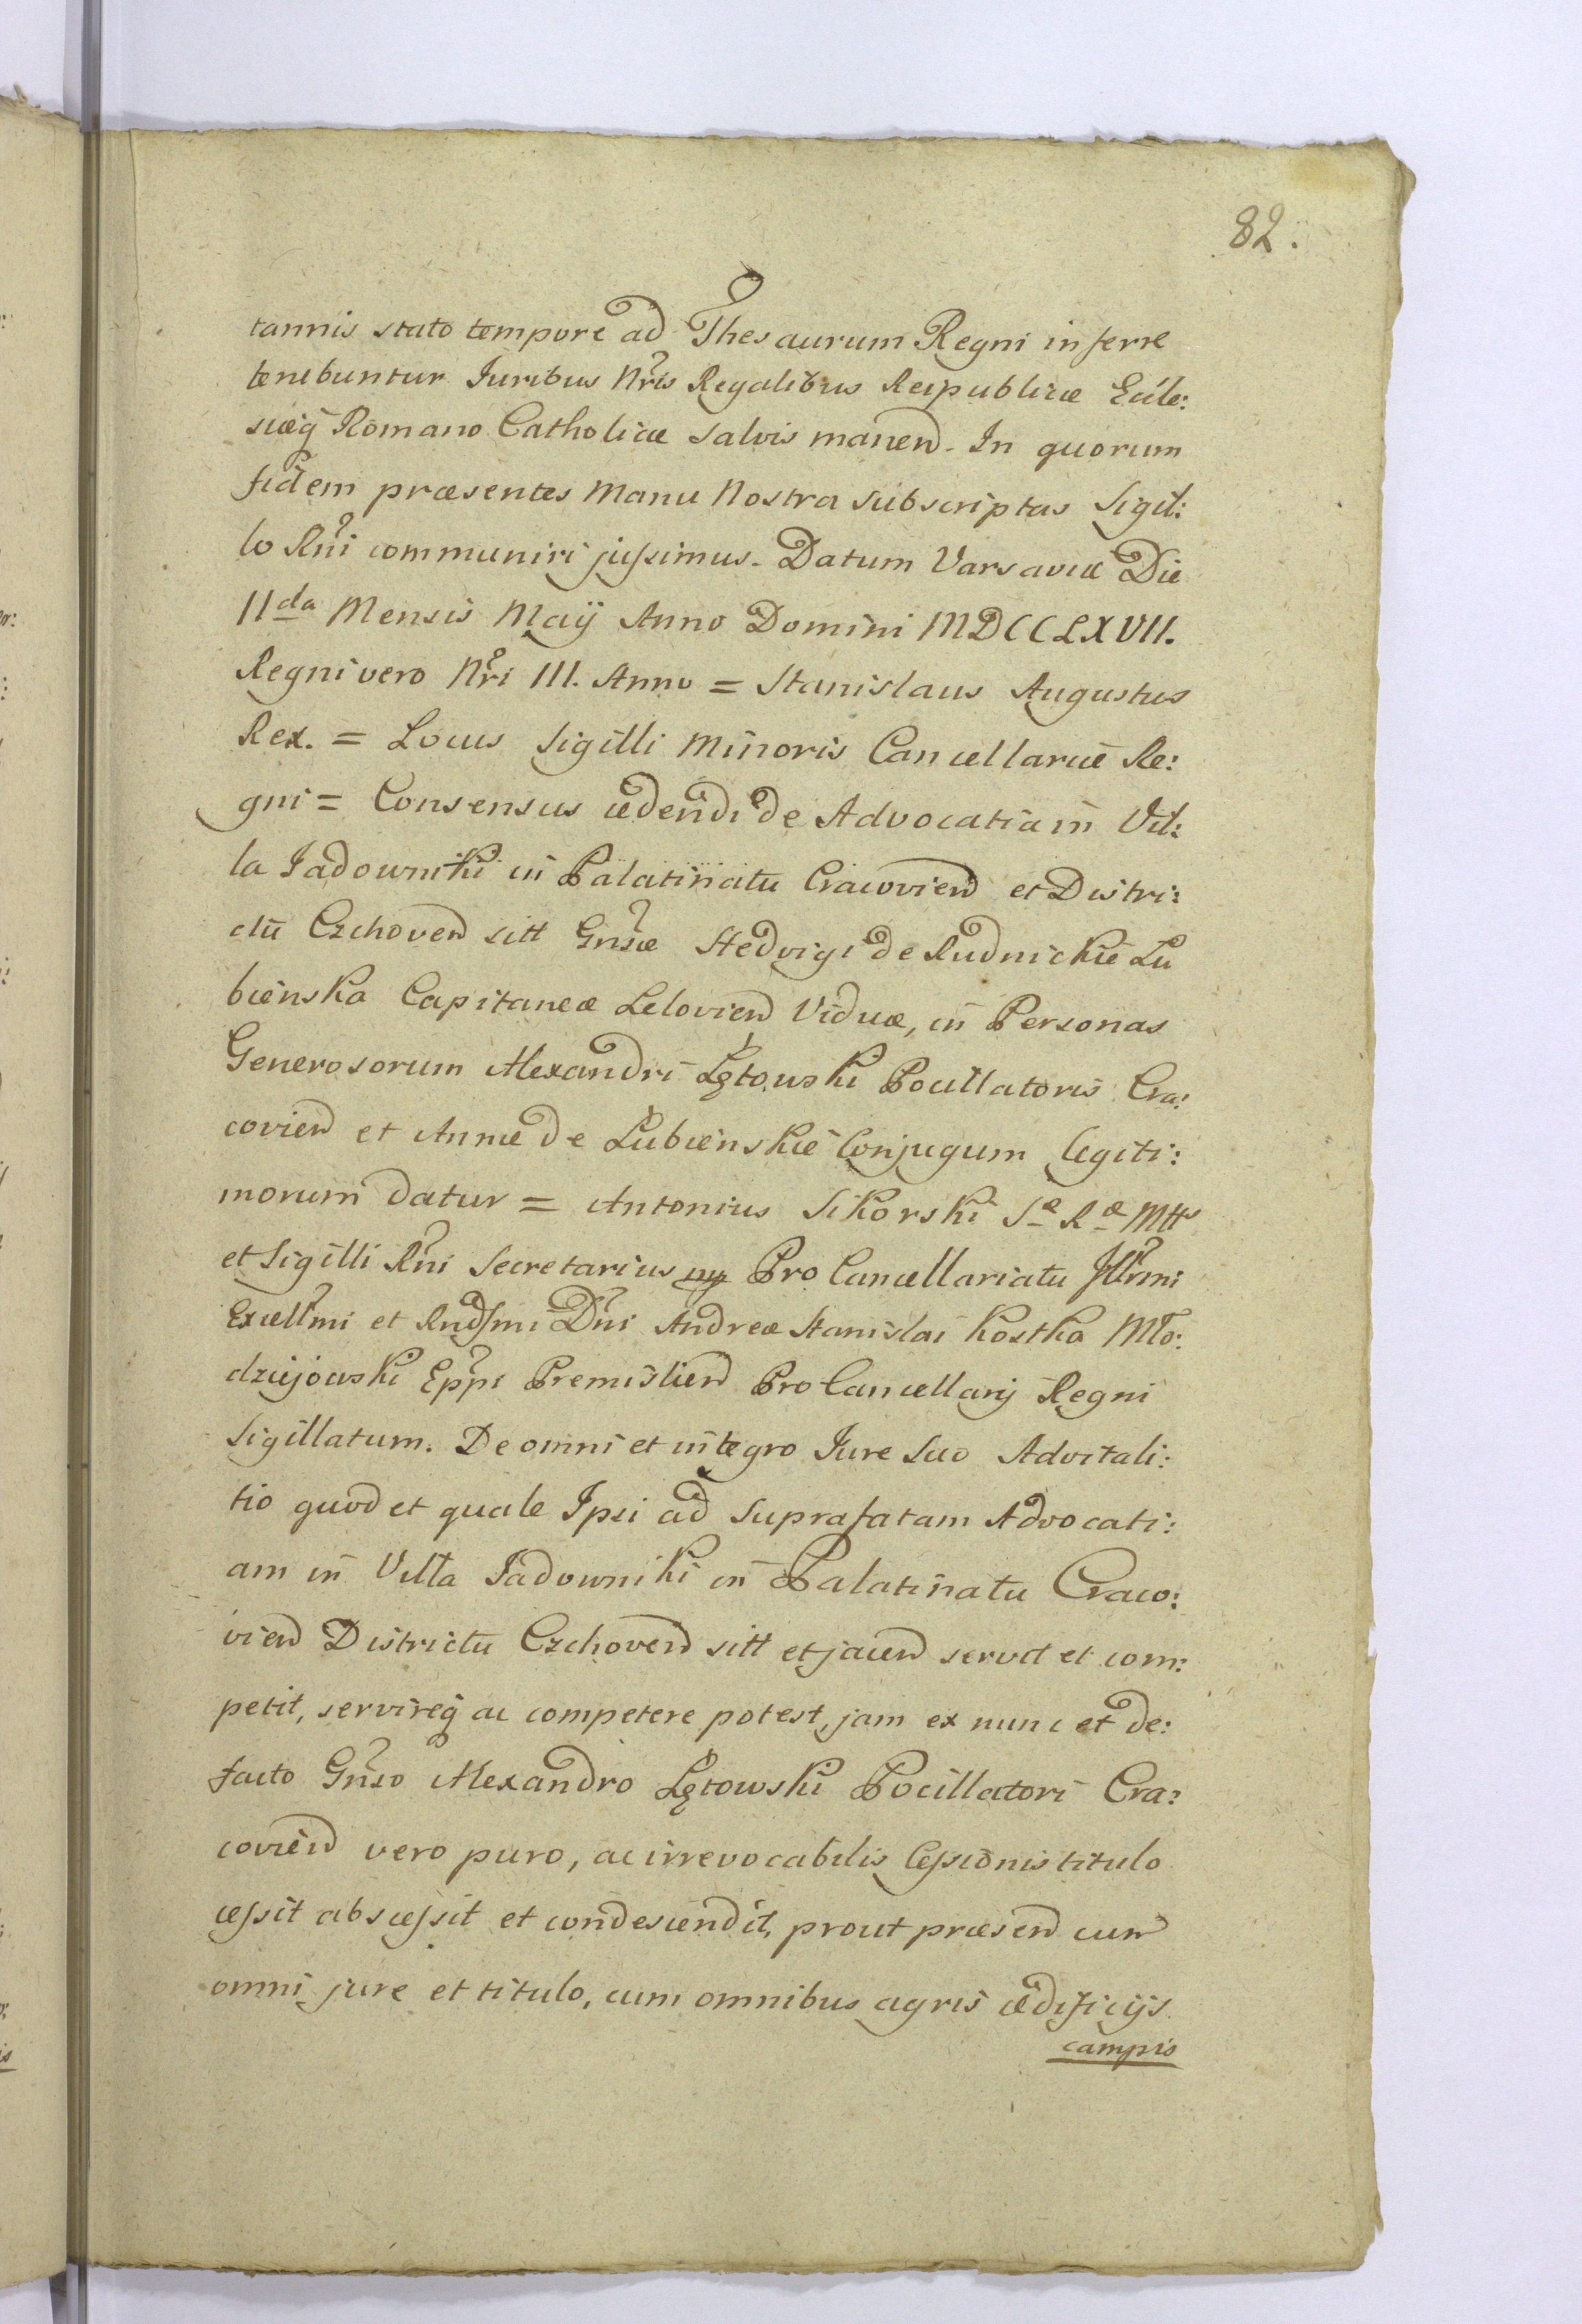 82.
tannis stato tempore ad Thesaurum Regni inferre
tenebuntur Juribus Nris Regalibus Reipublicæ Eccle:
siæq̃ Romano Catholicæ salvis manen̄. In quorum
fidem præsentes Manu Nostra subscriptas Sigil:
lo Rni communiri jussimus. Datum Varsaviæ Die
IIda Mensis Maÿ Anno Domini MDCCLXVII.
Regni vero Nri III. Anno = Stanislaus Augustus
Rex. = Locus Sigilli Minoris Cancellariæ Re:
gni = Consensus cedendi de Advocatia in Vil:
la Jadowniki in Palatinatu Cracovien̄ et Distri:
ctu Czchoven̄ sitt Gnsæ Hedvigi de Rudnickie Lu
bienska Capitaneæ Lelovien̄ Viduæ, in Personas
Generosorum Alexandri Lętowski Pocillatoris Cra:
covien̄ et Annæ de Łubienskie Conjugum legiti:
morum datur = Antonius Sikorski Sæ Ræ Mttis
et Sigilli Rni Secretarius mp Pro Cancellariatu Jllrmi
Excellmi et Rndssmi Dni Andreæ Stanislai Kostka Mło:
dziejowski Eppi Premislien̄ Pro Cancellarÿ Regni
Sigillatum. De omni et integro Jure suo Advitali:
tio quod et quale Ipsi ad suprafatam Advocati:
am in Villa Jadowniki in Palatinatu Craco:
vien̄ Districtu Czchoven̄ sitt et jacen̄ servit et com:
petit, servireq̃ ac competere potest, jam ex nunc et de:
facto Gnso Alexandro Lętowski Pocillatori Cra:
covien̄ vero puro, ac irrevocabilis Cessionis titulo
cessit abscessit et condescendit, prout præsen̄ cum
omni jure et titulo, cum omnibus agris ædificijs
campis